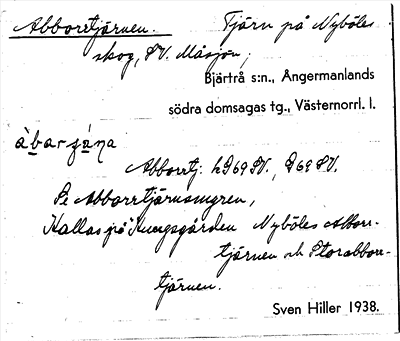 Abborrtjärnen. Tjärn på Nyböles
skog, SV. Måsjön;
Bjärtrå s:n., Ångermanlands
södra domsagas tg., Västernorrl. l.
Abborrtj. hD69SV., D69 SV.
Se Abborrtjärnsmyren,
Kallas på Kungsgården Nyböles Abborr-
tjärnen och Storabborr-
tjärnen.
Sven Hiller 1938.